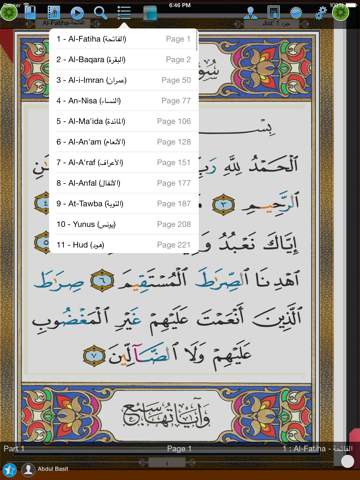 6:46 PM
100%
Al-Fatiha-الفاتحة
Juz' 1 جزء
1 - Al-Fatiha (الفاتحة) Page 1
2 - Al-Baqara (البقرة) Page 2
3 - Al-i-Imran (عمران) Page 50
4 - An-Nisa (النساء) Page 77
5 - Al-Ma'ida (المائدة) Page 106
6 - Al-An'am (الأنعام) Page 128
7 - Al-A'raf (الأعراف) Page 151
8 - Al-Anfal (الأنفال) Page 177
9 - At-Tawba (التوبة) Page 187
10 - Yunus (يونس) Page 208
11 - Hud (هود) Page 221
بِسْـ
الْحَمْدُ لِلَّهِ
الرَّحِيمِ ٣
إِيَّاكَ نَعْبُدُ
اهْدِنَا الصِّرَاطَ الْمُسْتَقِيمَ ٦ صِرَاطَ
الَّذِينَ أَنْعَمْتَ عَلَيْهِمْ غَيْرِ الْمَغْضُوبِ
عَلَيْهِمْ وَلَا الضَّالِّينَ ٧
وَآيَاتُهَا سَبْعٌ
Part 1 Page 1 1 : Al-Fatiha - الفاتحة
1
Abdul Basit